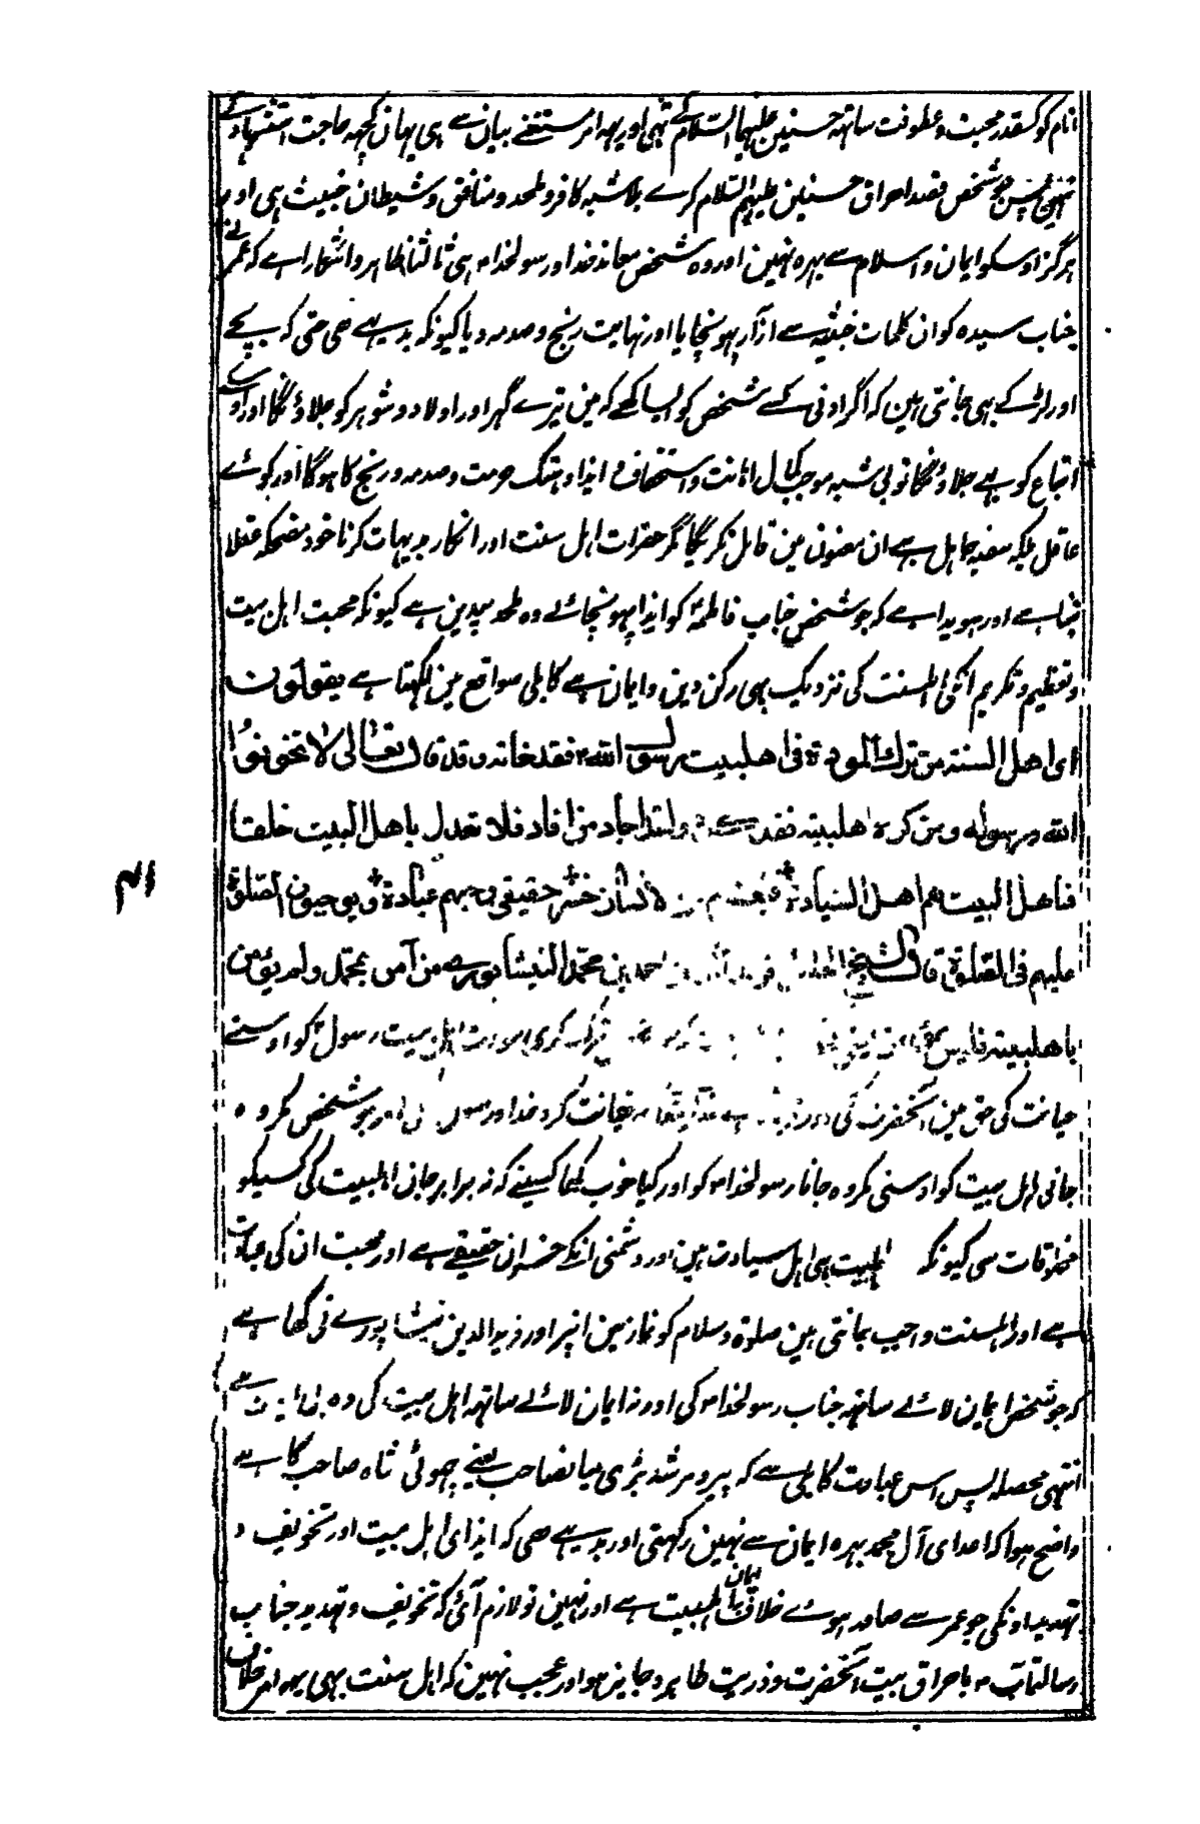 انام کو کسقدر محبت و عطوفت ساتھہ حسنین علیہما السلام کے تھی اور یہہ امر مستغنے بیان سے ہی یہان کچہہ حاجت استشہاد کے
نہین پس جو شخص قصد احراق حسنین علیہم السلام کرے بلا شبہ کافر و ملحد و منافق و شیطان خبیث ہی اور
ہرگز اوسکو ایمان و اسلام سے بہرہ نہین اور وہ شخص معاند خدا و رسولخدام ہی ثالثا ظاہر و آشکارا ہے کہ عمر نے
جناب سیدہ کو ان کلمات خبثیہ سے آزار پہونچایا اور نہایت رنج و صدمہ دیا کیونکہ بدیہے ہی حتی کہ بچے
اور لڑکے بہی جانتی ہین کہ اگر ادنی کسے شخص کو ایسا کہے کہ مین تیرے گہر اور اولاد و شوہر کو جلاؤنگا اور تیرے
اتباع کو بہے جلاؤنگا تو بی شبہ موجب کمال اہانت و استخفاف و ایذا و ہتک حرمت و صدمہ و رنج کا ہوگا اور کوئے
عاقل بلکہ سفیہ جاہل بہے ان مضمون مین تامل نکریگا مگر حضرات اہل سنت اور انکار بدیہات کرنا خود مضحکہ عقلا
بننا ہے اور ہویدا ہے کہ جو شخص جناب فاطمہؑ کو ایذا پہونچائے وہ ملحد بیدین ہے کیونکہ محبت اہل بیت
و تعظیم و تکریم انکی اہلسنت کی نزدیک بہی رکن دین و ایمان ہے کابلی مواقع مین لکہتا ہے یقولون
ای اهل السنة من ترك المودة فی اهلبیت رسول الله م فقد خانه و قد قال تعالی لا تخونوا
الله و رسوله و من کره اهلبیته فقد کرهه و لقد اجاد من افاد فلا تعدل باهل البیت خلقا
فاهل البیت هم اهل السیادة فبغضهم من الانسان خسر حقیقی و حبهم عبادة و یوجبون الصلوة
علیهم فی الصلوة قال الشیخ الجلیل فرید الدین احمد بن محمد النیشابوری من آمن بمحمد و لم یؤمن
باهلبیته فلیس بمؤمن ترک کری مودت اہل بیت رسولؐ کو اوسنے
خیانت کی حق مین آنحضرت کی خیانت کرو خدا اور رسول اور جو شخص مکروہ
جانی اہل بیت کو اوسنی مکروہ جانا رسولخدام کو اور کیا خوب کہا کسینے کہ نہ برابر جان اہلبیت کی کسیکو
مخلوقات سی کیونکہ اہلبیت ہی اہل سیادت ہین اور دشمنی انکے خسران حقیقے ہے اور محبت ان کی عبادت
ہے اور اہلسنت واجب جانتی ہین صلوۃ و سلام کو نماز مین انپر اور فرید الدین نیشاپورے نی کہا ہے
کہ جو شخص ایمان لائے ساتہہ جناب رسولخدام کی اور نہ ایمان لائے ساتہہ اہل بیت کی وہ
انتہی محصلہ پس اس عبارت کابلی سے کہ پیر و مرشد بڑی میانصاحب یعنے چہوٹی شاہ صاحب کا ہے
واضح ہوا کہ اعدای آل محمد بہرہ ایمان سے نہین رکہتی اور بدیہے ہی کہ ایذای اہل بیت اور تخویف و
تہدید اونکی جو عمر سے صادر ہوئے خلاف ایمان باہلبیت ہے اور نہین تو لازم آئی کہ تخویف و تہدید جناب
رسالتمآب م باحراق بیت آنحضرت و ذریت طاہرہ جایز ہو اور عجب نہین کہ اہل سنت بہی یہہ امر خلاف
۴۱